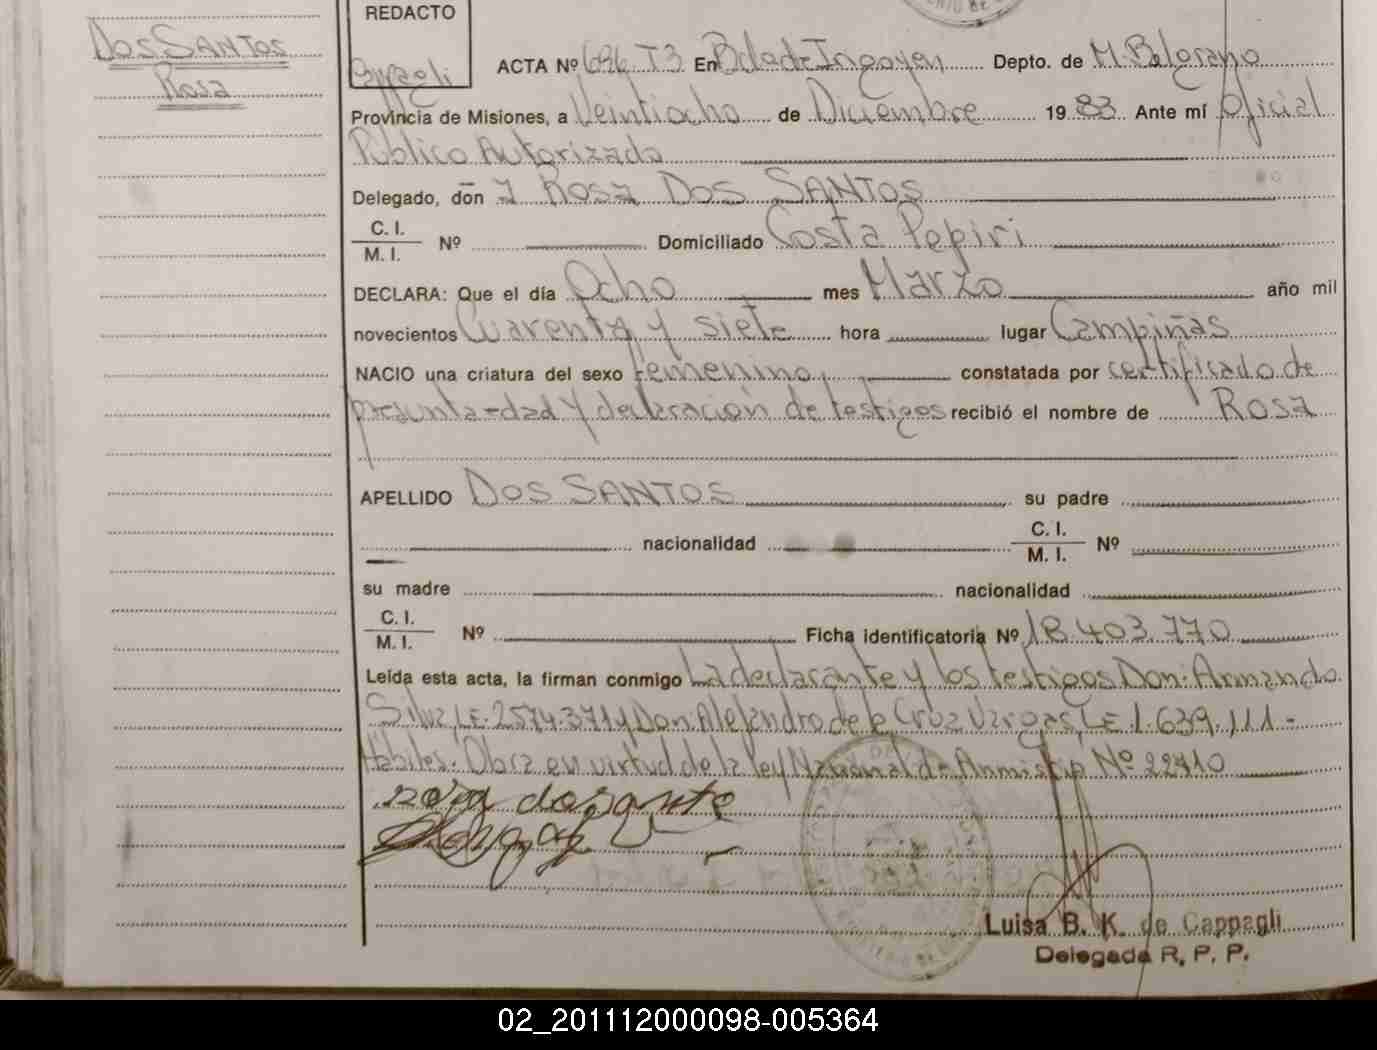 Dos Santos
Rosa
REDACTO
Cappagli
ACTA Nº 696 T3 En Bdo de Irigoyen Depto. de M. Belgrano
Provincia de Misiones, a Veintiocho de Diciembre 19 83 Ante mí Oficial
Público Autorizado
Delegado, don a Rosa DOS SANTOS
C. I.
M. I. Nº Domiciliado Costa Pepiri
DECLARA: Que el día Ocho mes Marzo año mil
novecientos Cuarenta y siete hora lugar Campiñas
NACIO una criatura del sexo femenino, constatada por certificado de
presunta edad y declaración de testigos recibió el nombre de Rosa
APELLIDO DOS SANTOS su padre
nacionalidad C. I.
M. I. Nº
su madre nacionalidad
C. I.
M. I. Nº Ficha identificatoria Nº 18.403.770
Leída esta acta, la firman conmigo La declarante y los testigos Don: Armando
Silva, LE. 2574.371 y Don Alejandro de la Cruz Vargas, LE 1.639.111-
Hábiles. Obra en virtud de la ley Nacional de Amnistía Nº 22410
Luisa B. K. de Cappagli
Delegada R. P. P.
02_201112000098-005364